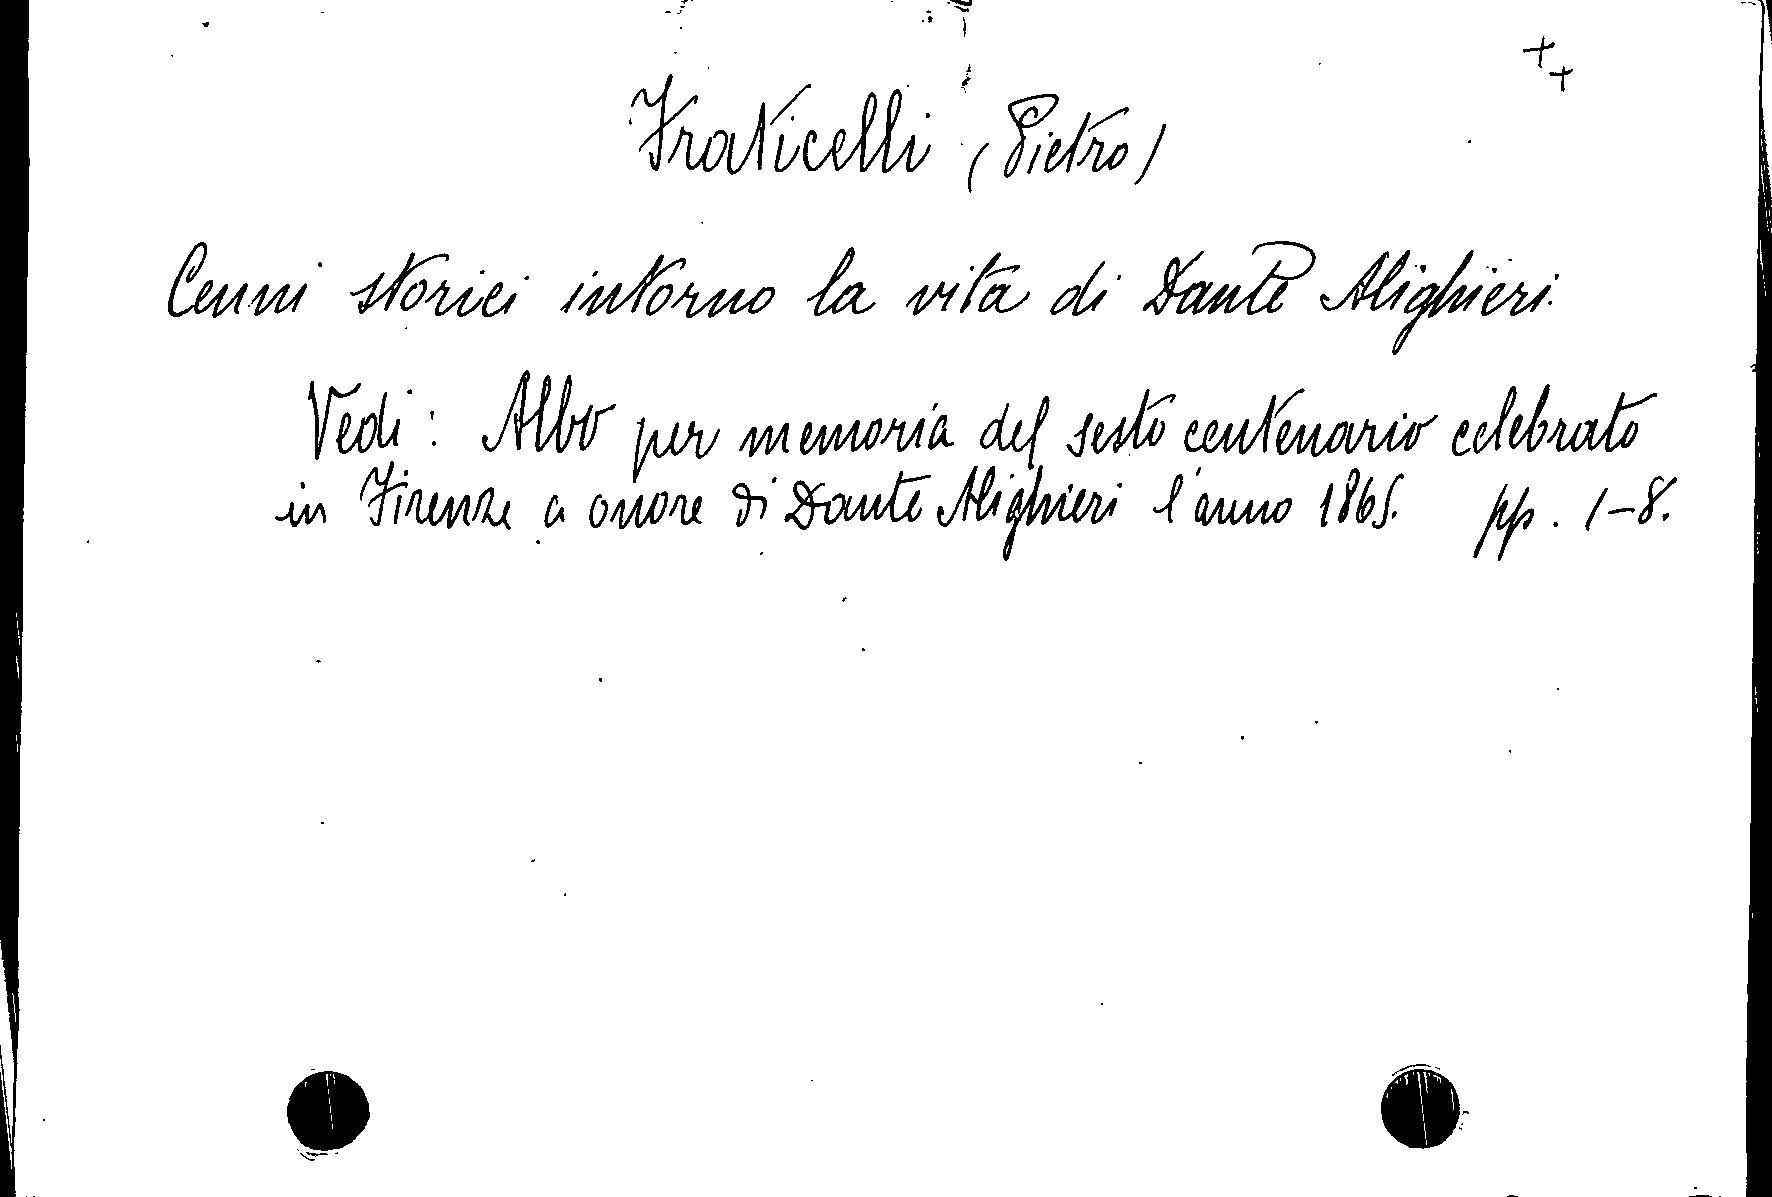 ++
Fraticelli (Pietro)
Cenni storici intorno la vita di Dante Alighieri.
Vedi: Albo per memoria del sesto centenario celebrato
in Firenze a onore di Dante Alighieri l'anno 1865. pp. 1-8.